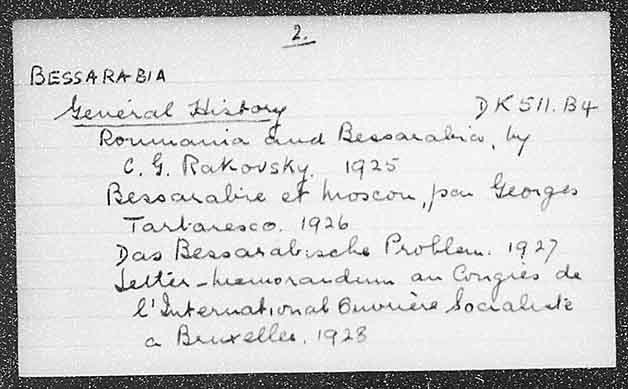 2.
BESSARABIA
General History DK511.B4
Roumania and Bessarabia, by
C. G. Rakovsky. 1925
Bessarabie et Moscou, par Georges
Tartaresco. 1926
Das Bessarabische Problem. 1927
Letter-memorandum au Congrès de
l'International Ouvrière Socialiste
a Bruxelles. 1928